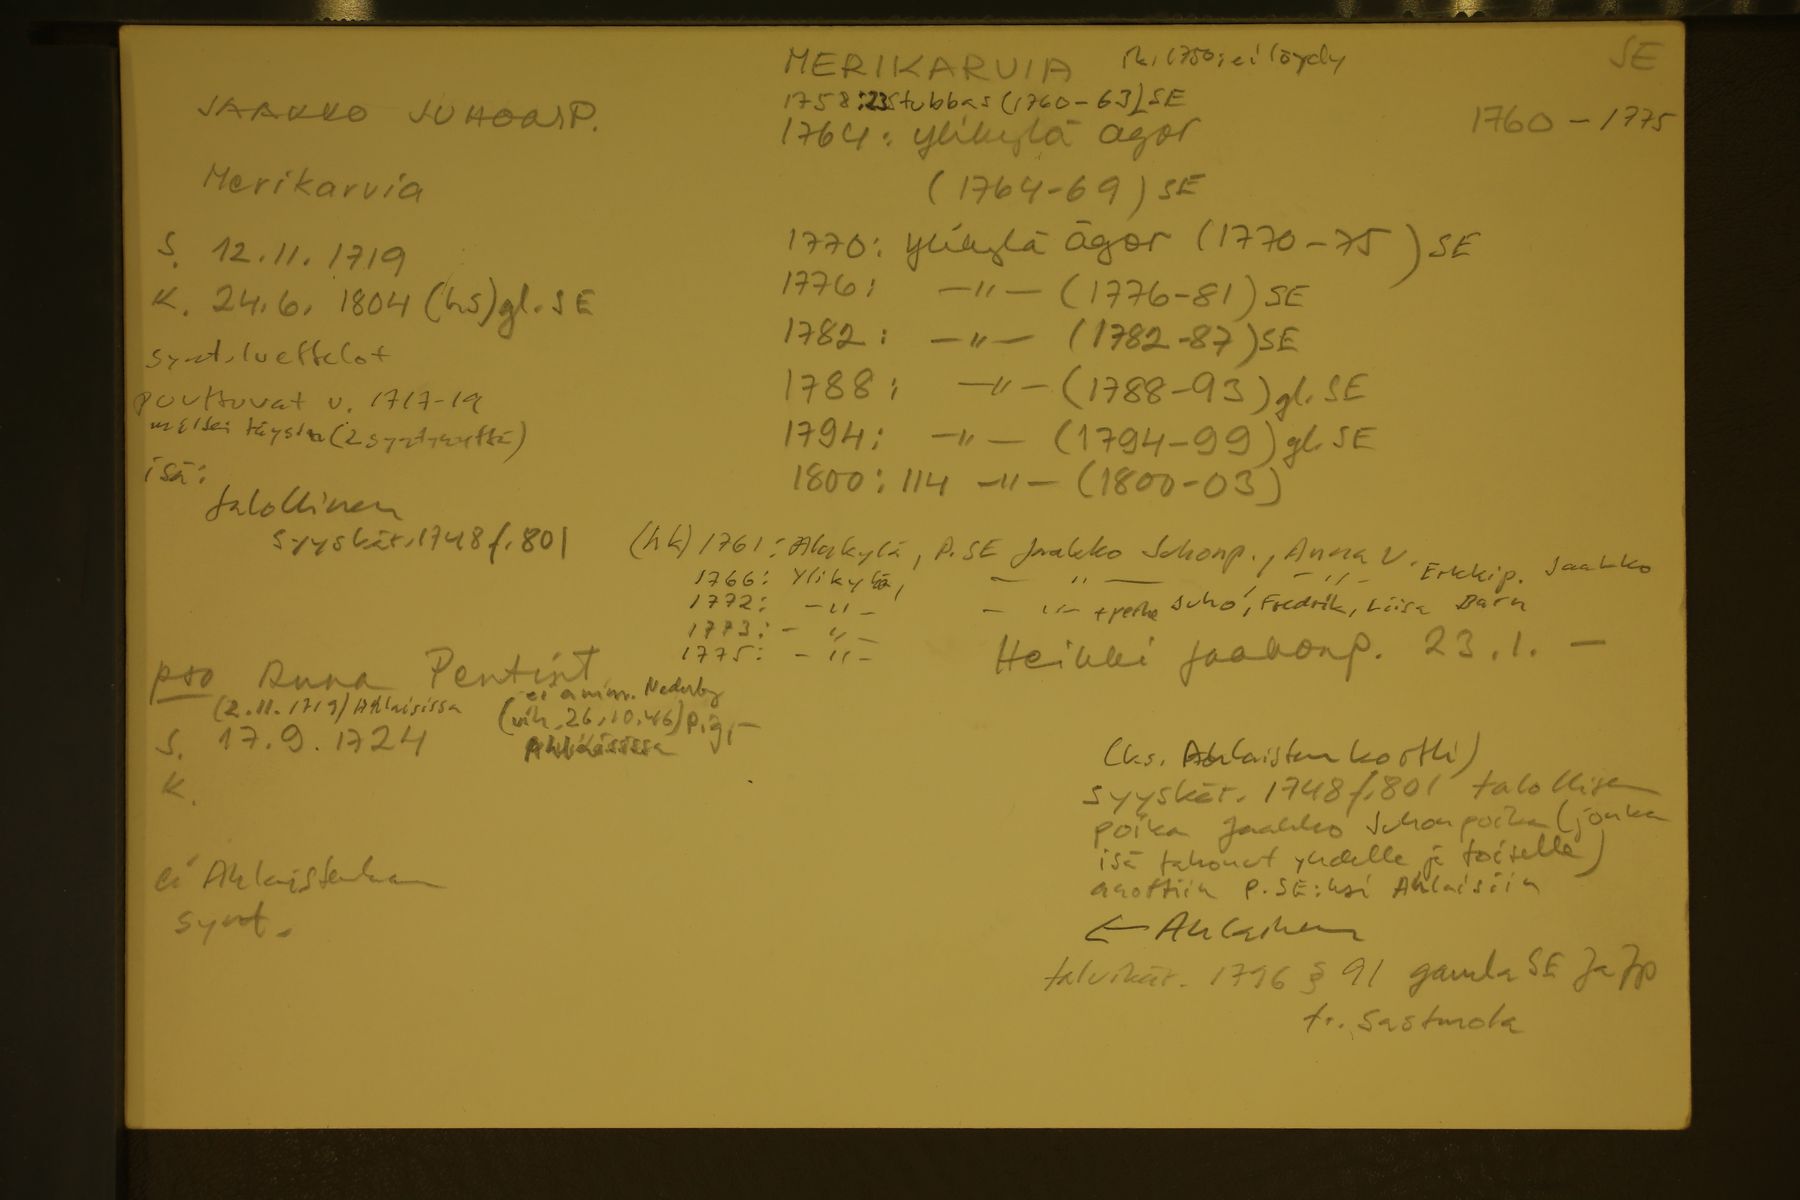 MERIKARVIA rk. 1750: ei löydy
SE
JAAKKO JUHONP.
1758: 23 Stubbas (1760-63) SE
1764: ylikylä ägor
1760-1775
(1764-69) SE
Merikarvia
1770: ylikylä ägor (1770-75) SE
S. 12.11.1719
1776: -"- (1776-81) SE
K. 24.6. 1804 (hs) gl. SE
1782: -"- (1782-87) SE
synt.luettelot
1788: -"- (1788-93) gl. SE
puuttuvat v. 1717-19
1794: -"- (1794-99) gl. SE
melkei täysin (2 syntynyttä)
1800: 114 -"- (1800-03)
isä:
talollinen
syyskär. 1748 f. 801
(hk) 1761: Alakylä, p. SE Jaakko Juhonp., Anna V.
1766: Ylikylä, -"- -"- Erkkip. Jaakko
1772: -"- -"- + perhe Juho, Fredrik, Liisa Barn
1773: -"-
1775: -"-
Heikki Jaakonp. 23.1. -
pso Anna Pentint
(2.11.1719) Ahlaisissa
ei amm. Nederby
(vih. 26.10.46) p.
Ahlaisissa
S. 17.9.1724
K.
(ks. Ahlaisten kortti)
syyskär. 1748 f. 801 talollisen
poika Jaakko Juhonpoika (jonka
isä tahonut yhdelle ja toiselle)
anottiin p. SE:ksi Ahlaisiin
ei Ahlaistenkaan
synt.
← Ahlainen
talvikär. 1796 § 91 gamla SE Ja Jp
t:. Sastmola